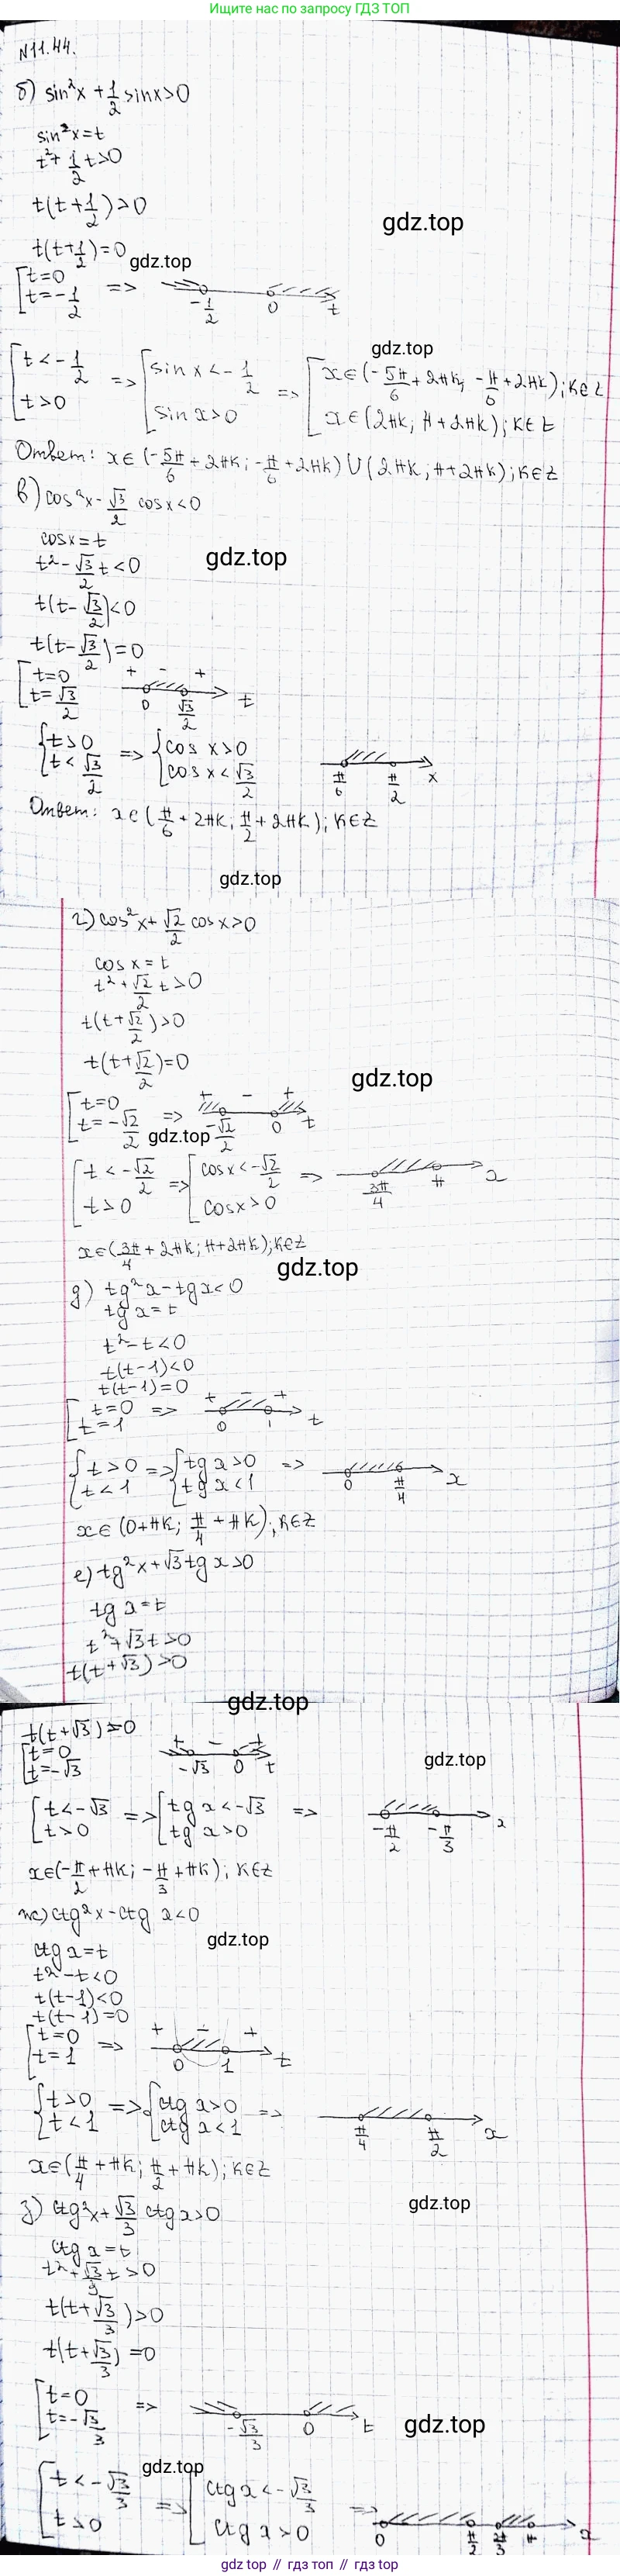 Ищите нас по запросу ГДЗ ТОП
N11.44.
б) sin²x + 1/2 sinx>0
sin²x=t
t²+ 1/2 t>0
t(t+1/2)>0
gdz.top
t(t+1/2)=0
gdz.top
[t=0
t=-1/2 =>
-1/2 0 t
gdz.top
[t<-1/2
t>0
=> [sin x<-1/2
sin x>0
=> [x∈(-5π/6+2πk; -π/6+2πk); k∈Z
x∈(2πk; π+2πk); k∈Z
Ответ: x∈(-5π/6+2πk; -π/6+2πk)∪(2πk; π+2πk); k∈Z
в) cos²x-√3/2 cosx<0
cosx=t
gdz.top
t²-√3/2 t<0
t(t-√3/2)<0
t(t-√3/2)=0
[t=0
t=√3/2
+ - +
0 √3/2 t
{t>0
t<√3/2
=> {cos x>0
cos x<√3/2
π/6 π/2 x
Ответ: x∈(π/6+2πk; π/2+2πk); k∈Z
gdz.top
г) cos²x+√2/2 cosx>0
cos x=t
t²+√2/2 t>0
t(t+√2/2)>0
t(t+√2/2)=0
gdz.top
[t=0
t=-√2/2 =>
+ - +
-√2/2 0 t
gdz.top
[t<-√2/2
t>0
=> [cosx<-√2/2
cosx>0
=>
3π/4 π x
x∈(3π/4+2πk; π+2πk); k∈Z
gdz.top
д) tg²x-tgx<0
tg x=t
t²-t<0
t(t-1)<0
t(t-1)=0
[t=0
t=1 =>
+ - +
0 1 t
{t>0
t<1
=> {tg x>0
tg x<1
=>
0 π/4 x
x∈(0+πk; π/4+πk); k∈Z
е) tg²x+√3tg x>0
tg x=t
t²+√3t>0
t(t+√3)>0
gdz.top
t(t+√3)=0
[t=0
t=-√3
+ - +
-√3 0 t
gdz.top
[t<-√3
t>0
=> [tg x<-√3
tg x>0
=>
-π/2 -π/3 x
x∈(-π/2+πk; -π/3+πk); k∈Z
ж) ctg²x-ctg x<0
gdz.top
ctg x=t
t²-t<0
t(t-1)<0
t(t-1)=0
[t=0
t=1 =>
+ - +
0 1 t
{t>0
t<1
=> {ctg x>0
ctg x<1
=>
π/4 π/2 x
x∈(π/4+πk; π/2+πk); k∈Z
gdz.top
з) ctg²x+√3/3 ctg x>0
ctg x=t
t²+√3/3 t>0
t(t+√3/3)>0
t(t+√3/3)=0
[t=0
t=-√3/3
=>
-√3/3 0 t
gdz.top
gdz.top
[t<-√3/3
t>0
=> [ctg x<-√3/3
ctg x>0
=>
0 π/2 2π/3 π x
gdz.top // гдз топ // gdz.top